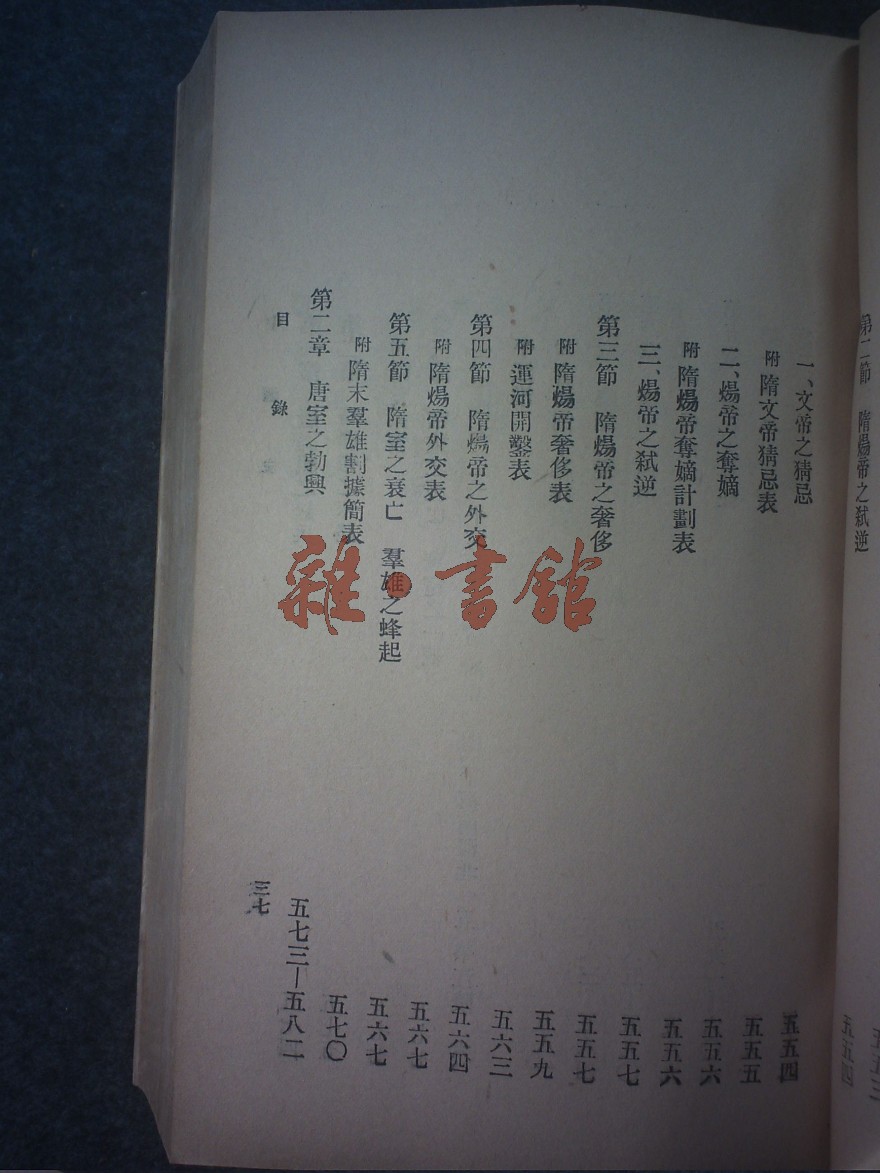 五五三
第二節 隋煬帝之弒逆 五五四
一、文帝之猜忌 五五四
附 隋文帝猜忌表 五五五
二、煬帝之奪嫡 五五六
附 隋煬帝奪嫡計劃表 五五六
三、煬帝之弒逆 五五七
第三節 隋煬帝之奢侈 五五七
附 隋煬帝奢侈表 五五九
附 運河開鑿表 五六三
第四節 隋煬帝之外交 五六四
附 隋煬帝外交表 五六七
第五節 隋室之衰亡 羣雄之蜂起 五六七
附 隋末羣雄割據簡表 五七〇
第二章 唐室之勃興 五七三—五八二
目錄 三七
雜·書館